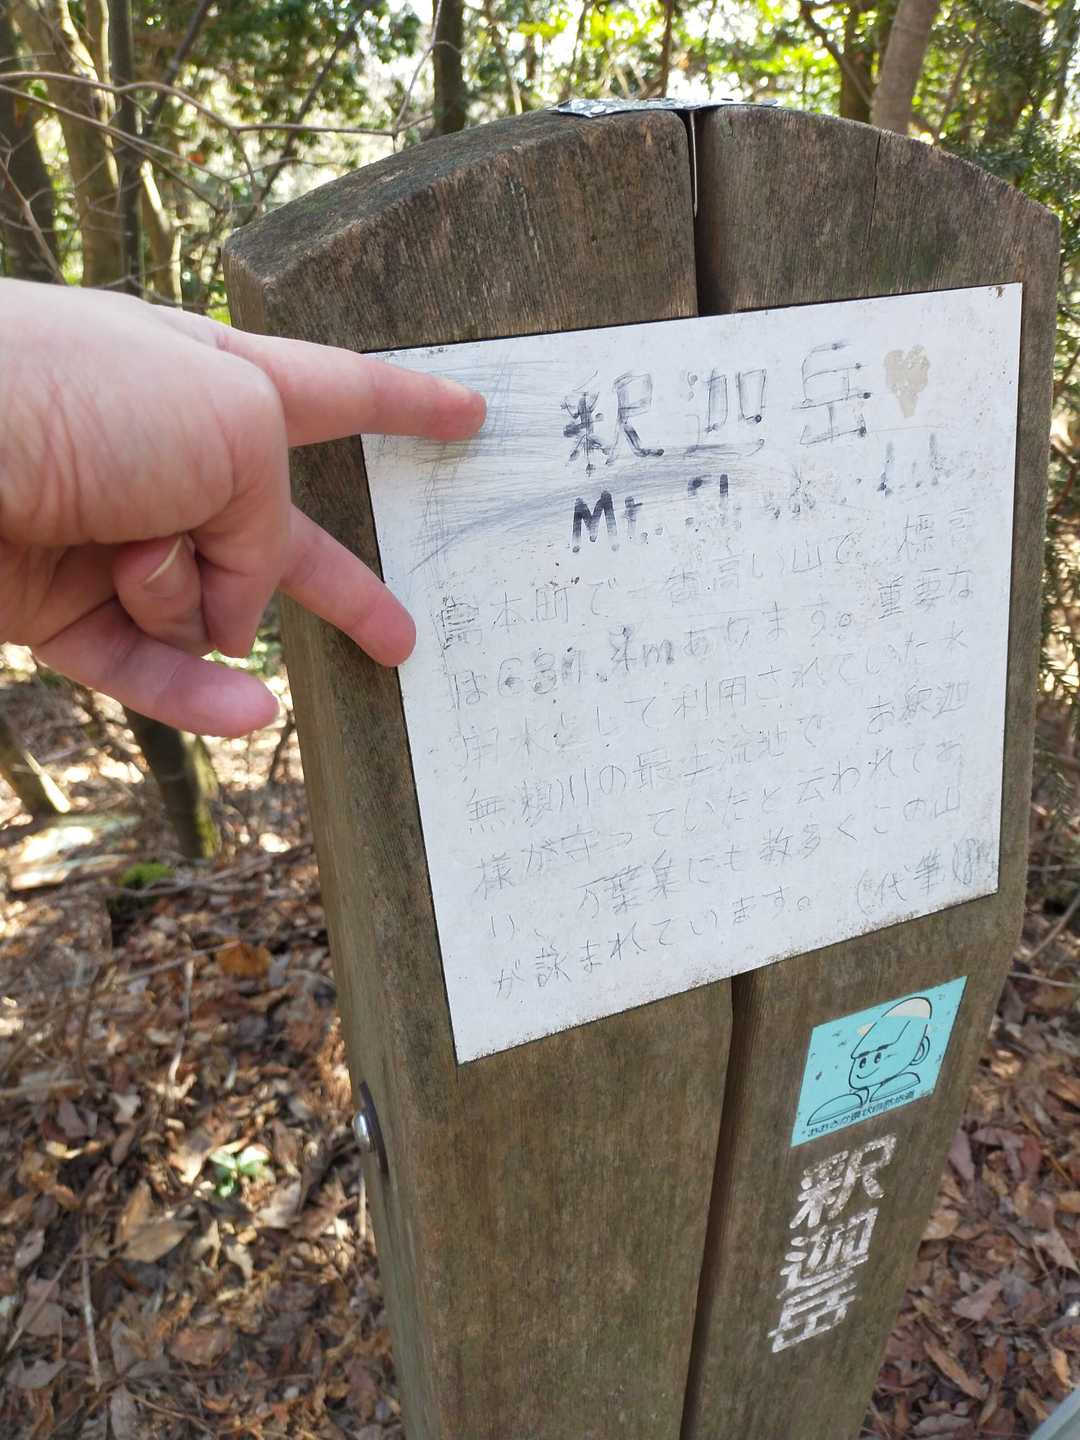 釈迦岳
Mt.
島本町で一番高い山で、標高
は631.4mあります。重要な
用水として利用されていた水
無瀬川の最上流地で、お釈迦
様が守っていたと云われてお
り、万葉集にも数多くこの山
が詠まれています。(代筆
おおさか環状自然歩道
釈迦岳